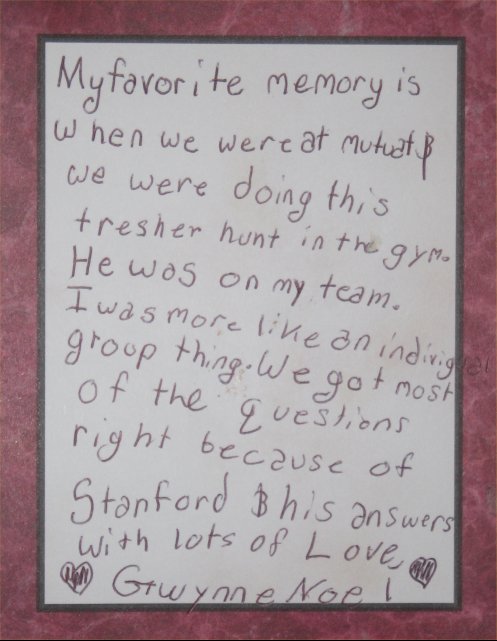 My favorite memory is
when we were at mutual &
we were doing this
tresher hunt in the gym.
He was on my team.
I was more like an individual
group thing. We got most
of the questions
right because of
Stanford & his answers
with lots of Love,
Gwynne Noel